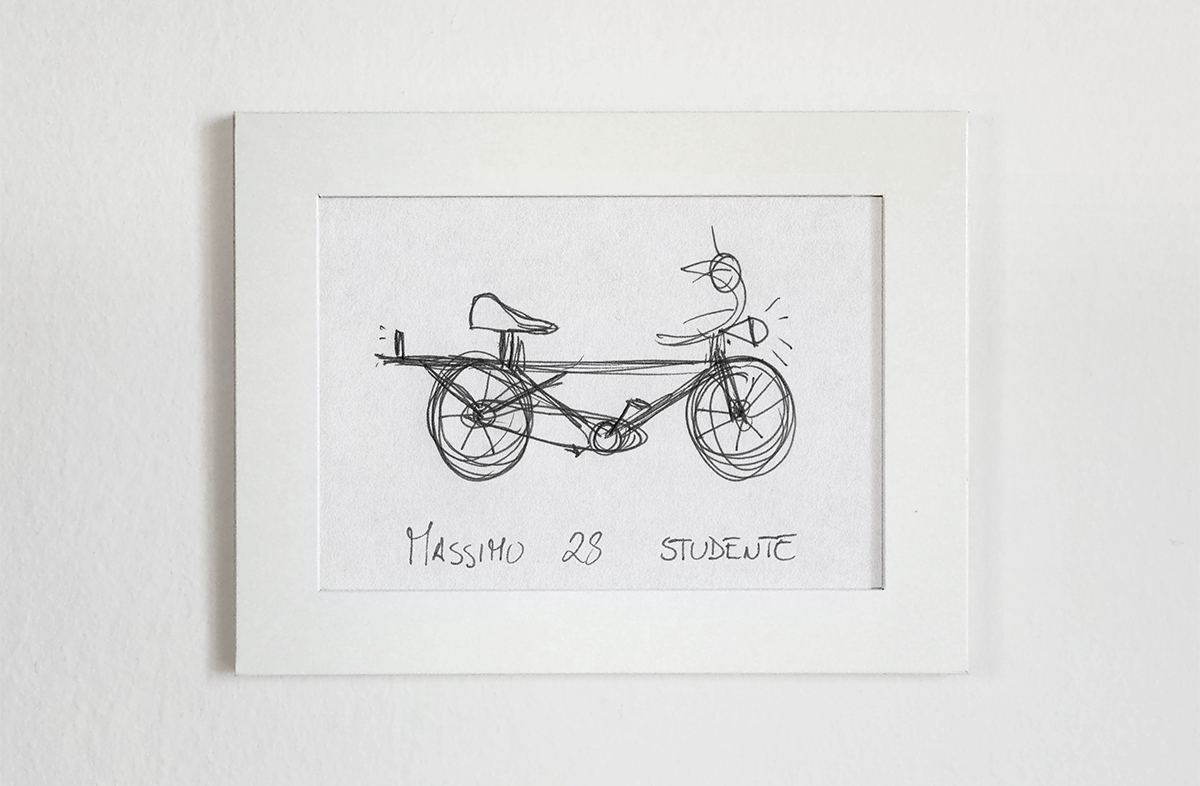 Massimo 28 STUDENTE